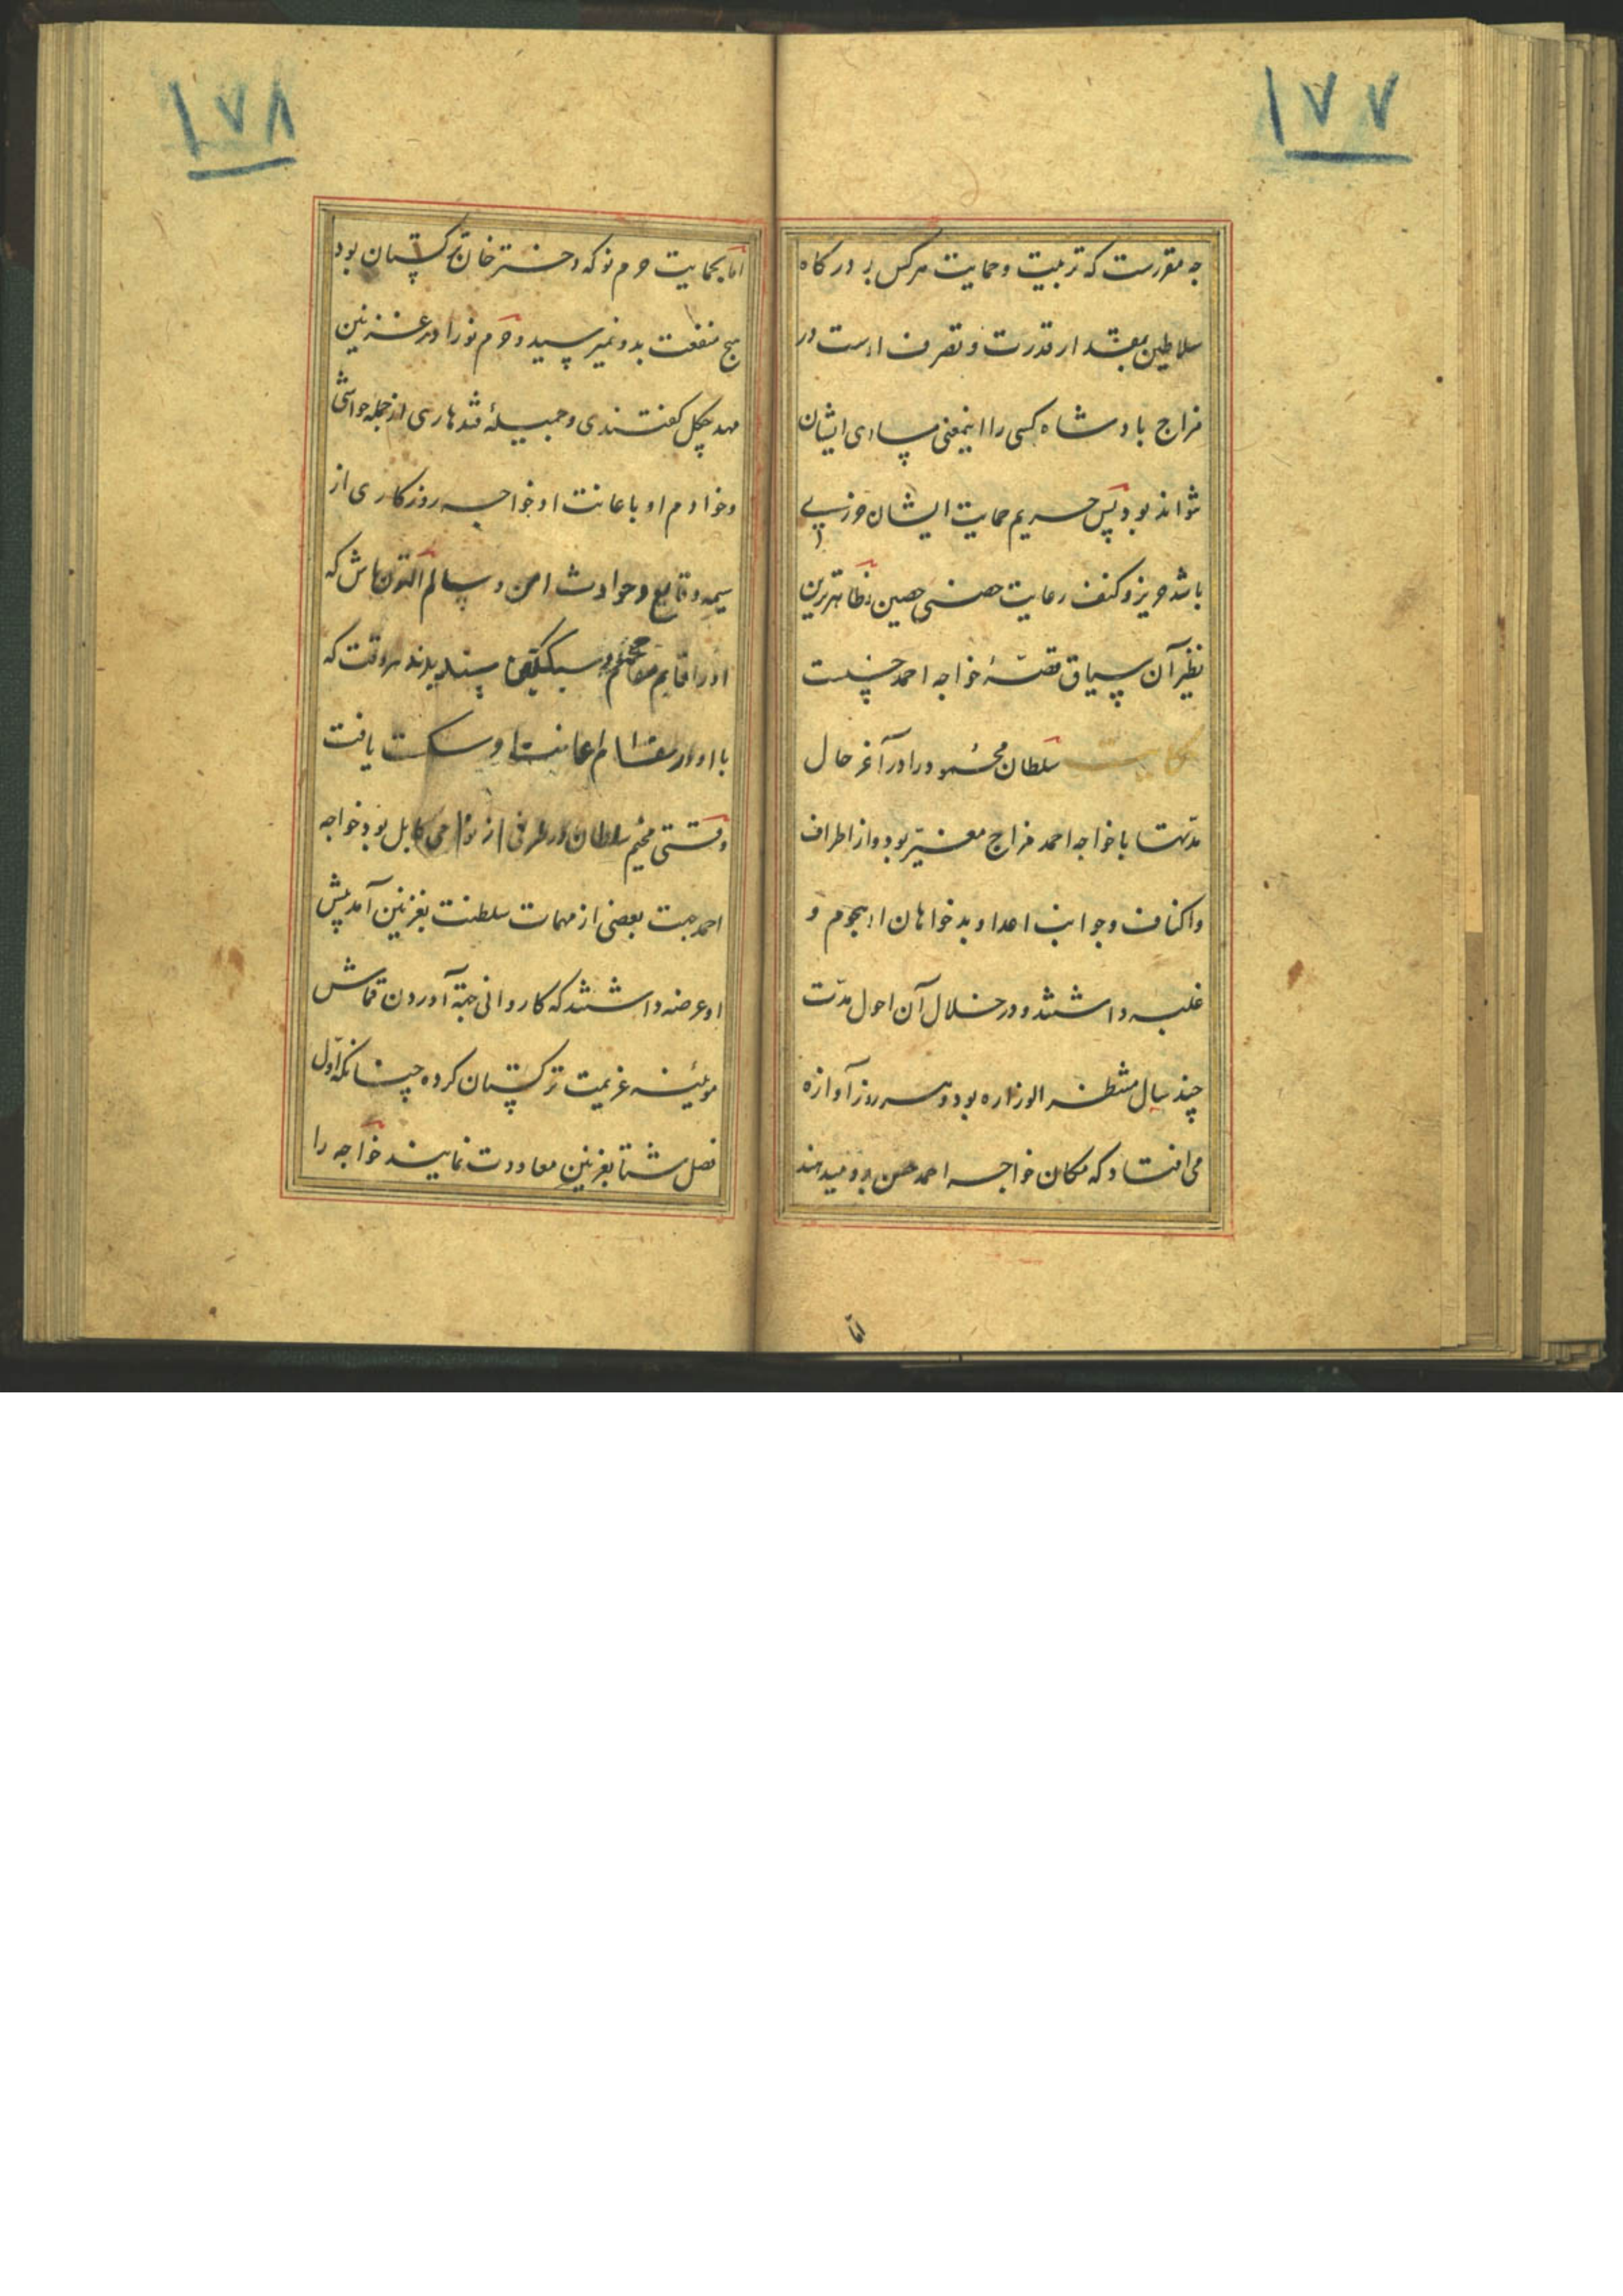 ۱۷۷
چه مقررست که تربیت و حمایت هرکس بر درکاه
سلاطین بمقدار قدرت و تصرف اوست در
مزاج پادشاه کسی را اینمعنی مساوی ایشان
نتواند بود پس حریم حمایت ایشان حرزی
باشد حریز و کنف رعایت حصنی حصین و ظاهرترین
نظیر آن سیاق قصهٔ خواجه احمد حسنست
حکایت سلطان محمود را در آخر حال
مدتها با خواجه احمد مزاج متغیر بود و از اطراف
و اکناف و جوانب اعدا و بدخواهان او هجوم و
غلبه داشتند و در خلال آن احول مدت
چند سال منتظر الوزاره بود و هر روز آوازه
می افتاد که مکان خواجه احمد حسن برو میدهند
اما
۱۷۸
اما بحمایت حرم نو که دختر خان ترکستان بود
هیچ منفعت بدو نمیرسید و حرم نو را در غزنین
مهد چکل کفتندی و جمیلهٔ قندهاری از جمله حواشی
و خوادم او باعانت او خواجه روزکاری از
همه وقایع و حوادث امن و سالم التون تاش که
او را قایم مقام سبکتکین پسندیدند هر وقت که
با او در مقام اعانت او سکت یافت
وقتی مخیم سلطان در طرفی از نواحی کابل بود خواجه
احمد جهت بعضی از مهمات سلطنت بغزنین آمد پیش
او عرضه داشتند که کاروانی جهة آوردن قماش
موئینه عزیمت ترکستان کرده چنانکه اول
فصل شتا بغزنین معاودت نمایند خواجه را